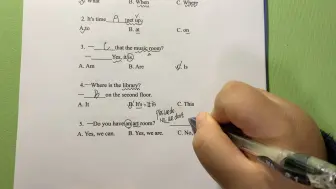 A. What B. When C. Where
2. It's time A get up.
A. to B. at C. on
3. — C that the music room?
— Yes, it is.
A. Am B. Are C. Is
4. —Where is the library?
— B on the second floor.
A. It B. It's C. This
5. —Do you have an art room?
A. Yes, we can. B. Yes, we are. C. No,